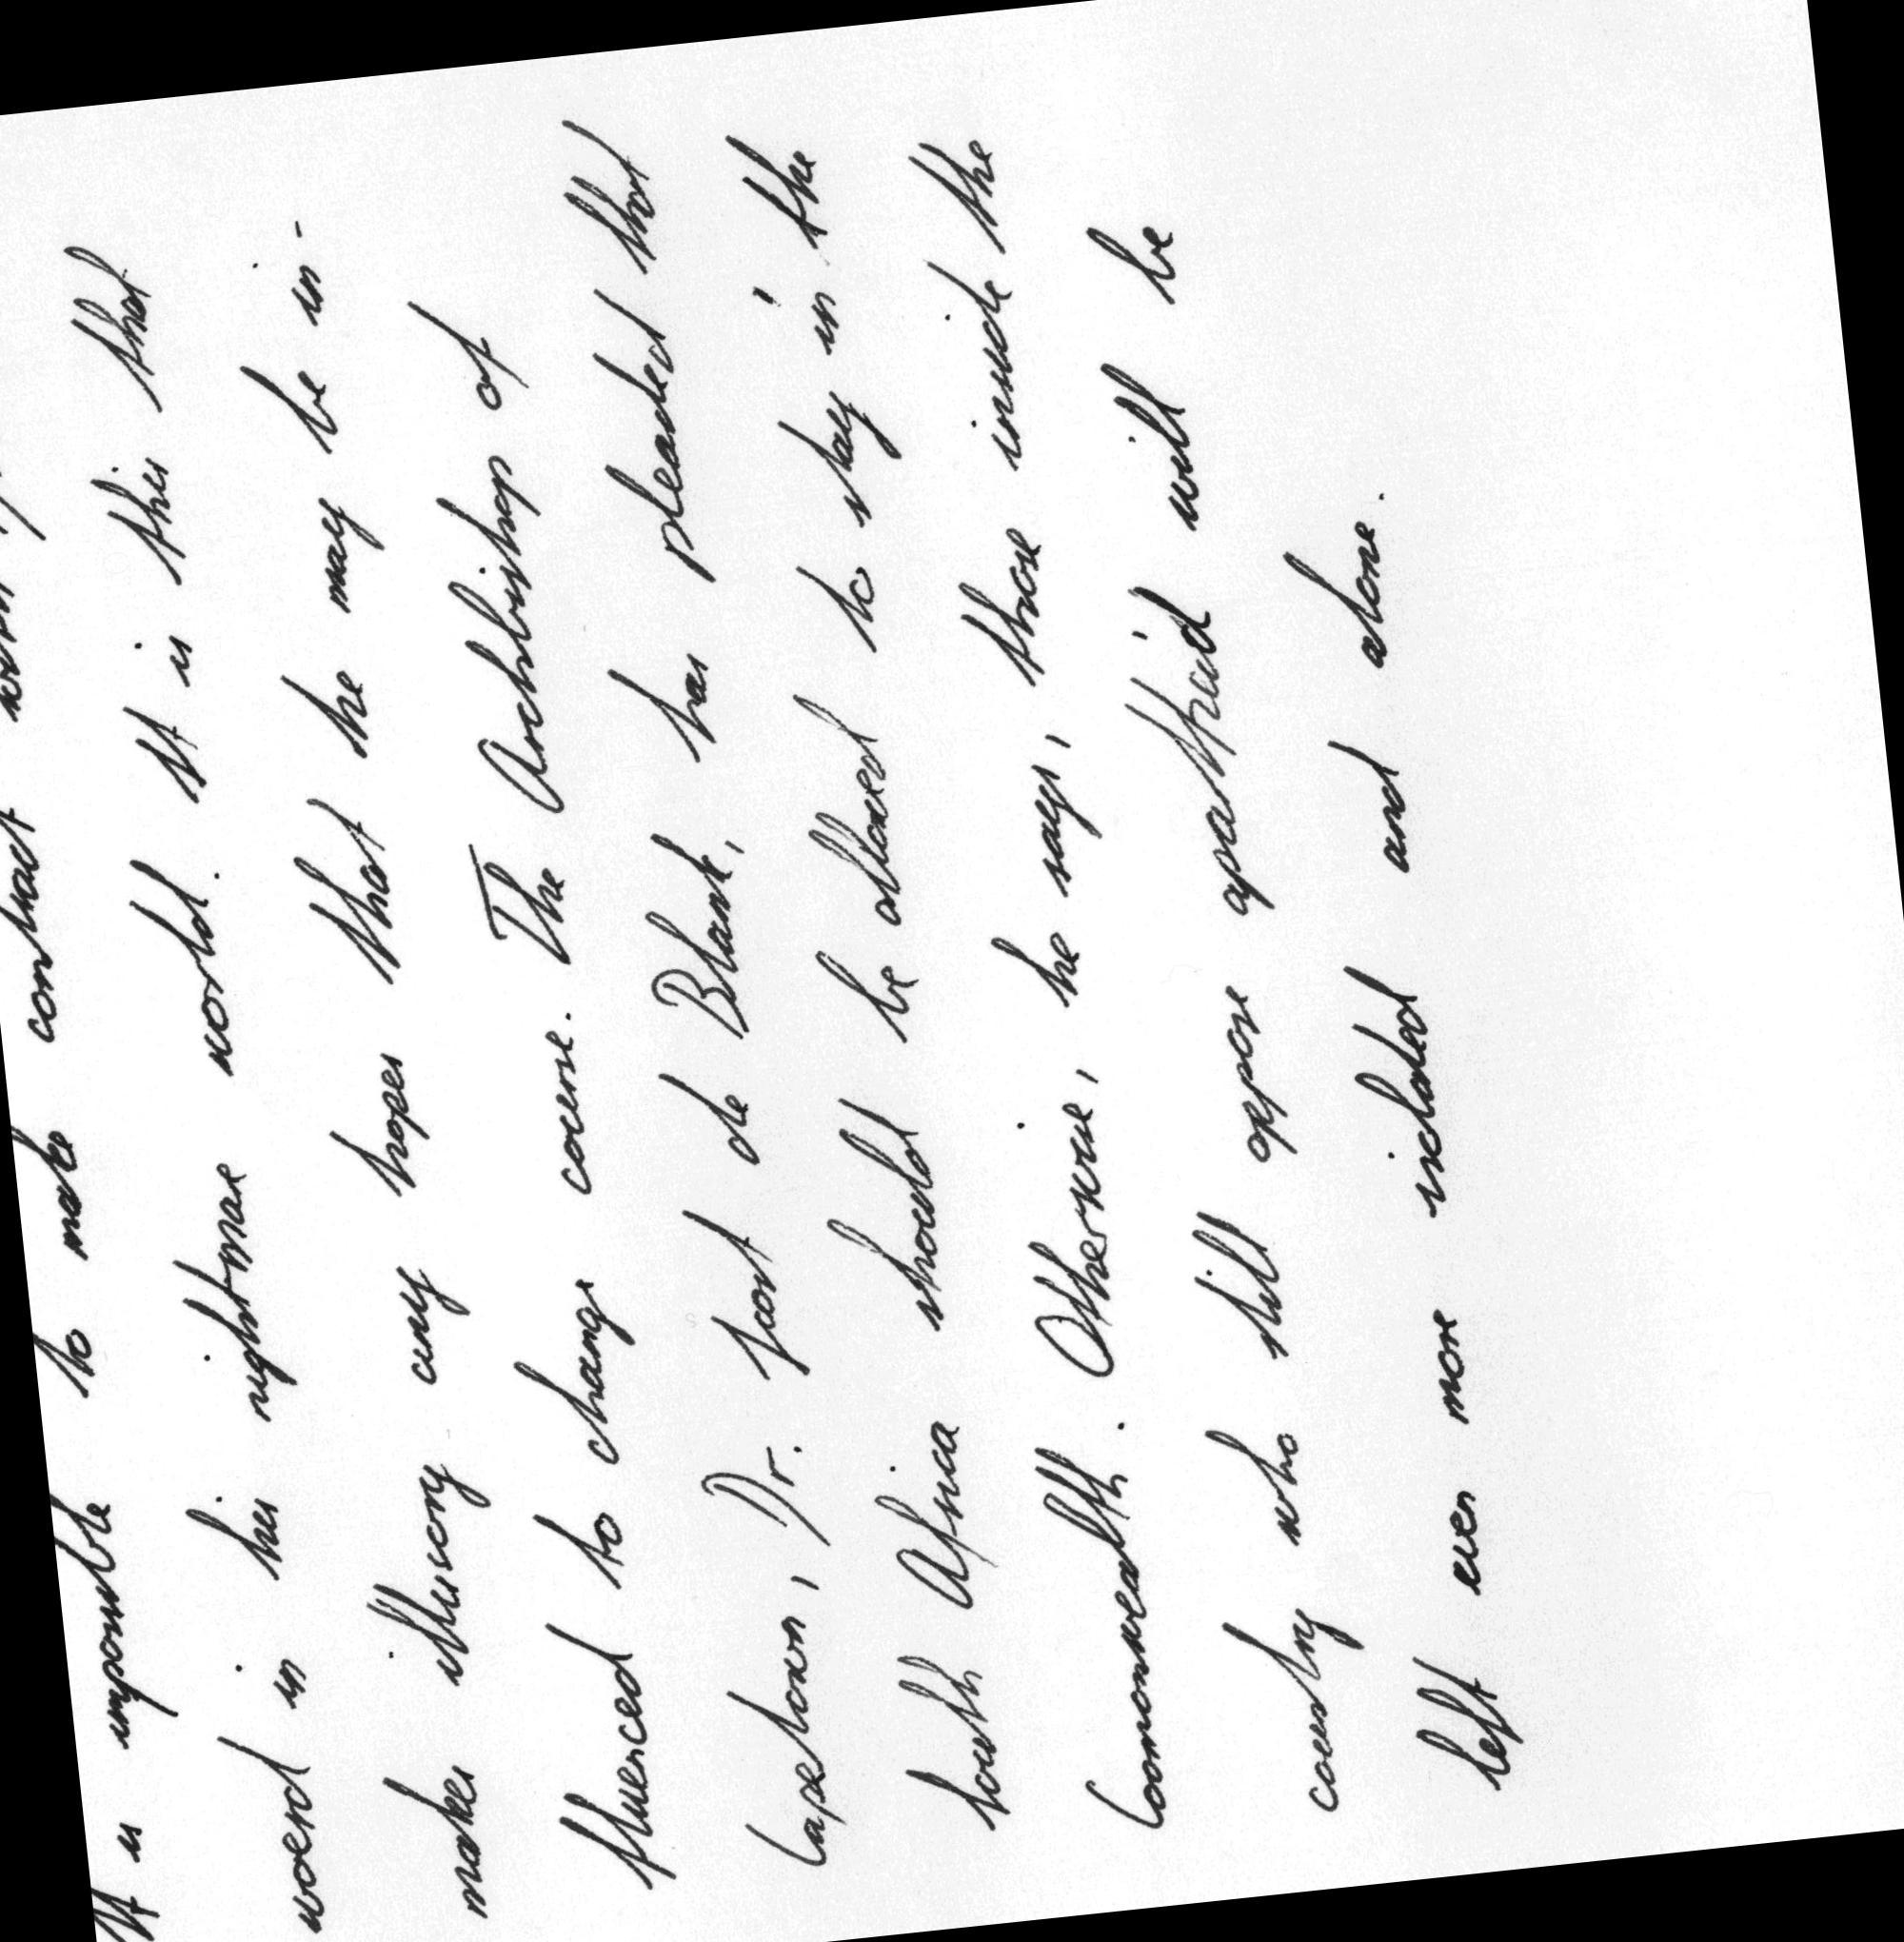 It is impossible to make contact
woerd in his nightmare world. It is this that
makes illusory any hopes that he may be in-
fluenced to change course. The Archbishop of
Capetown, Dr. Joost de Blank, has pleaded that
South Africa should be allowed to stay in the
Commonwealth. Otherwise, he says, those inside the
country who still oppose apartheid will be
left even more isolated and alone.